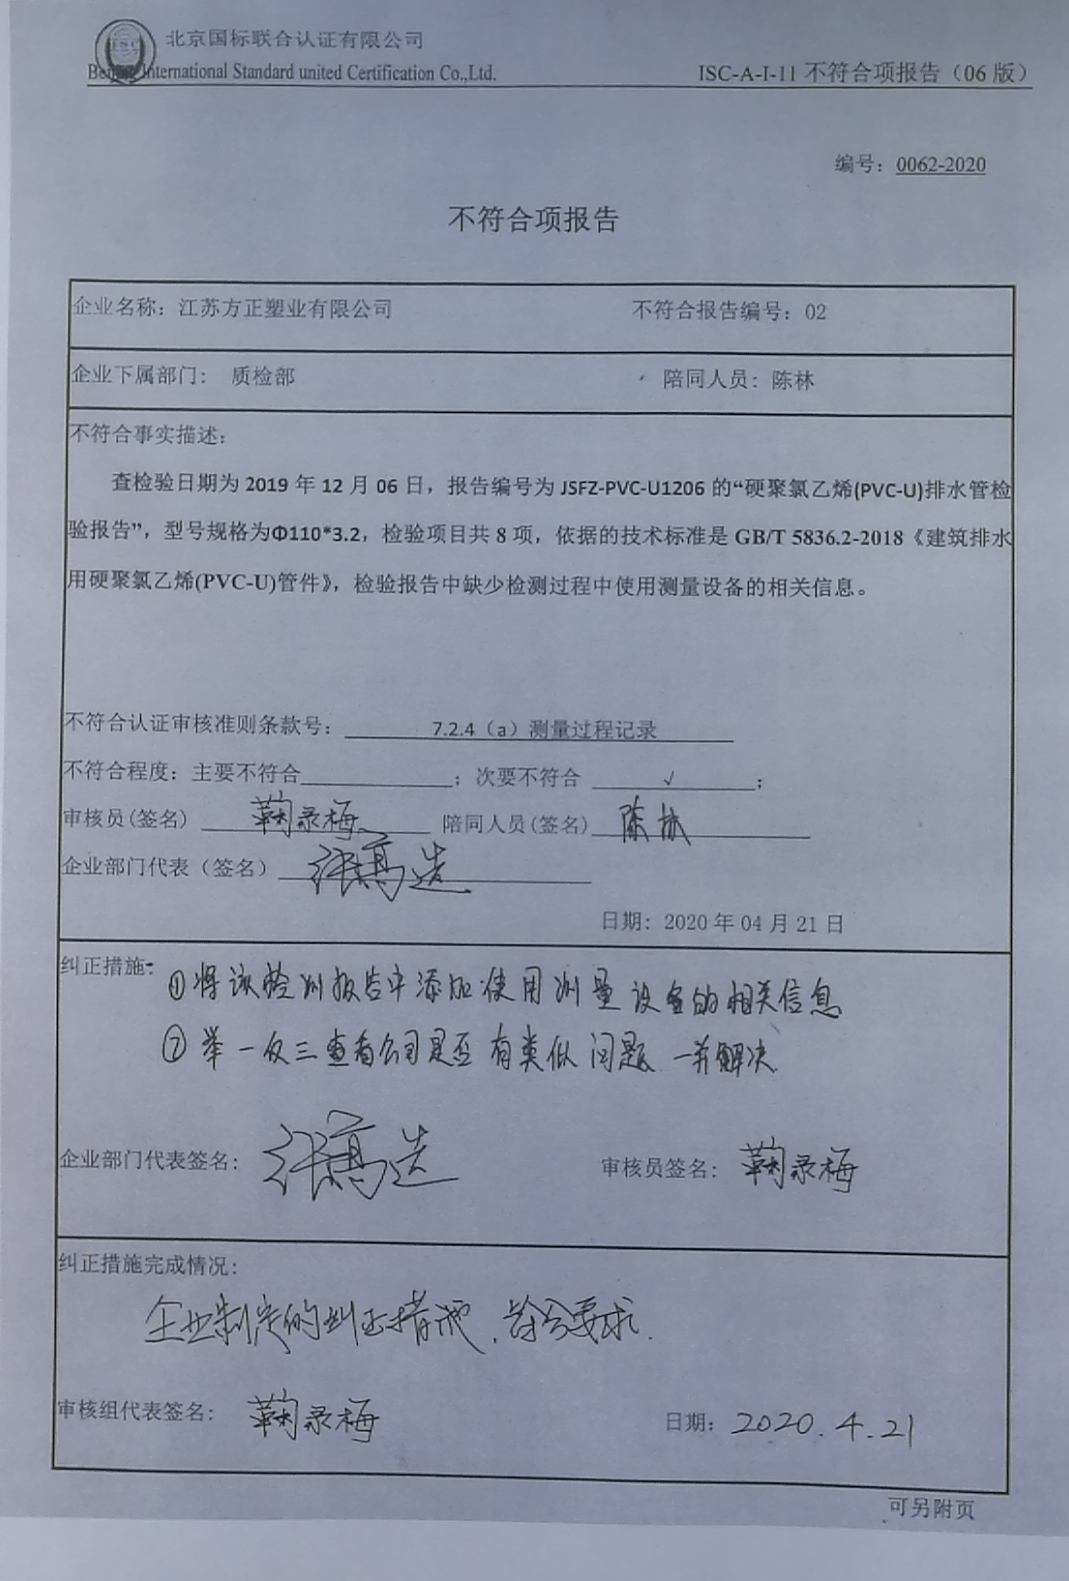 北京国标联合认证有限公司
Beijing International Standard united Certification Co.,Ltd.
ISC-A-I-11 不符合项报告（06 版）
编号：0062-2020
不符合项报告
企业名称：江苏方正塑业有限公司 不符合报告编号：02
企业下属部门： 质检部 陪同人员：陈林
不符合事实描述：
查检验日期为 2019 年 12 月 06 日，报告编号为 JSFZ-PVC-U1206 的“硬聚氯乙烯(PVC-U)排水管检
验报告”，型号规格为Φ110*3.2，检验项目共 8 项，依据的技术标准是 GB/T 5836.2-2018《建筑排水
用硬聚氯乙烯(PVC-U)管件》，检验报告中缺少检测过程中使用测量设备的相关信息。
不符合认证审核准则条款号： 7.2.4（a）测量过程记录
不符合程度：主要不符合 ；次要不符合 √ ；
审核员(签名) 鞠录梅 陪同人员(签名) 陈林
企业部门代表（签名）
日期：2020 年 04 月 21 日
纠正措施：
①将该检测报告中添加使用测量设备的相关信息
②举一反三查看公司是否有类似问题 一并解决
企业部门代表签名： 审核员签名：鞠录梅
纠正措施完成情况：
企业制定的纠正措施，符合要求.
审核组代表签名：鞠录梅 日期：2020.4.21
可另附页